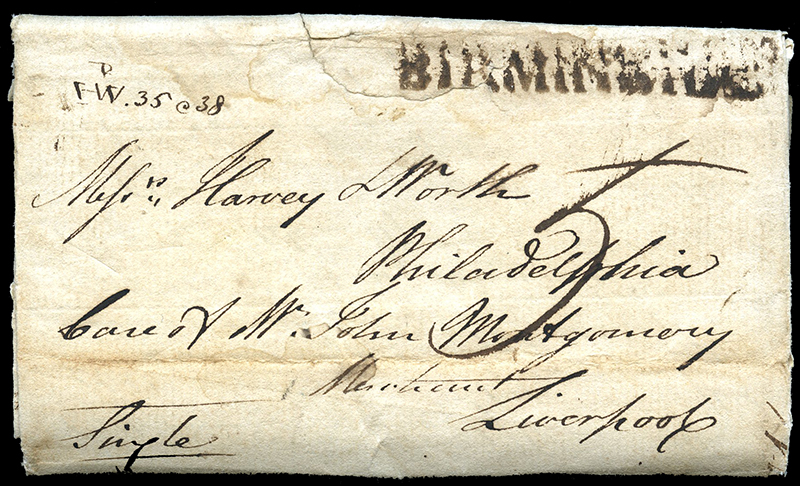 BIRMINGHAM
FW. 35 @ 38
Messrs. Harvey & Worth
5
Philadelphia
Care of Mr. John Montgomery
Merchant
Liverpool
Single